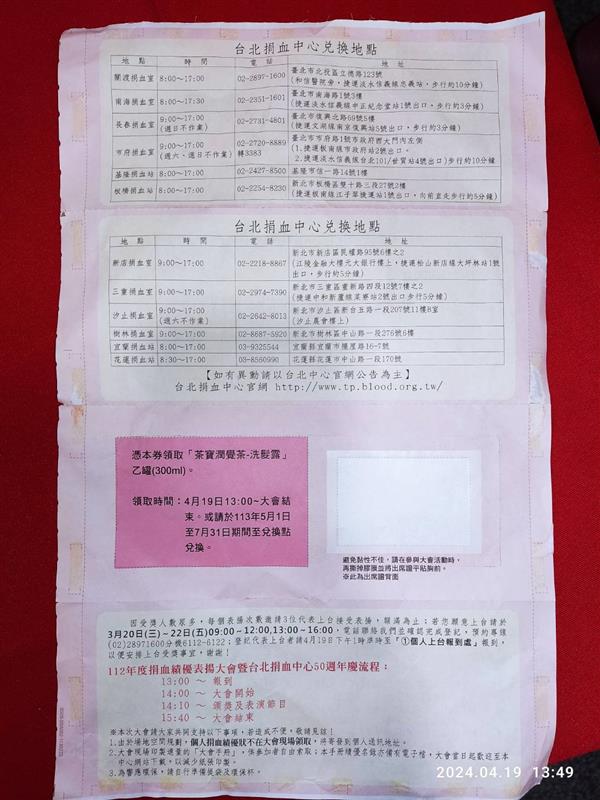 台北捐血中心兌換地點
地 點 時 間 電 話 地 址
關渡捐血室 8:00~17:00 02-2897-1600 臺北市北投區立德路123號
(和信醫院旁,捷運淡水信義線忠義站,步行約10分鐘)
南海捐血室 8:00~17:30 02-2351-1601 臺北市南海路1號3樓
(捷運淡水信義線中正紀念堂站1號出口,步行約3分鐘)
長春捐血室 9:00~17:00
(週日不作業) 02-2731-4801 臺北市復興北路69號5樓
(捷運文湖線南京復興站5號出口,步行約3分鐘)
市府捐血室 9:00~17:00
(週六、週日不作業) 02-2720-8889
轉3383 臺北市市府路1號市政府西大門內左側
(1.捷運板南線市政府站2號出口。
2.捷運淡水信義線台北101/世貿站4號出口)步行約10分鐘)
基隆捐血站 8:00~17:00 02-2427-8500 基隆市信一路14號1樓
板橋捐血站 8:00~17:00 02-2254-8230 新北市板橋區雙十路三段27號2樓
(捷運板南線江子翠捷運站1號出口,向前直走步行約5分鐘)
台北捐血中心兌換地點
地 點 時 間 電 話 地 址
新店捐血室 9:00~17:00 02-2218-8867 新北市新店區民權路95號6樓之2
(江陵金融大樓元大銀行樓上,捷運松山新店線大坪林站1號
出口,步行約5分鐘)
三重捐血室 9:00~17:00 02-2974-7390 新北市三重區重新路四段12號7樓之2
(捷運中和新蘆線菜寮站2號出口步行5分鐘)
汐止捐血室 9:00~17:00
(週六不作業) 02-2642-8013 新北市汐止區新台五路一段207號11樓B室
(汐止農會樓上)
樹林捐血室 9:00~17:00 02-8687-5920 新北市樹林區中山路一段276號6樓
宜蘭捐血站 8:00~17:00 03-9325544 宜蘭縣宜蘭市種屋路16-7號
花蓮捐血站 8:30~17:00 03-8560990 花蓮縣花蓮市中山路一段170號
【如有異動請以台北中心官網公告為主】
台北捐血中心官網 http://www.tp.blood.org.tw/
憑本券領取「茶寶潤覺茶-洗髮露」
乙罐(300ml)。
領取時間:4月19日13:00~大會結
束。或請於113年5月1日
至7月31日期間至兌換點
兌換。
避免黏性不佳,請在參與大會活動時,
再撕掉膠膜並將出席證平貼胸前。
※此為出席證背面
因受獎人數眾多,每個表揚次數邀請3位代表上台接受表揚,額滿為止;若您願意上台請於
3月20日(三)~22日(五)09:00~12:00,13:00~16:00,電話聯絡我們並確認完成登記,預約專線
(02)28971600分機6112~6122;登記代表上台者請4月19日下午1時準時至「①個人上台報到處」報到,
以便安排上台受獎事宜,謝謝!
112年度捐血績優表揚大會暨台北捐血中心50週年慶流程:
13:00 ~ 報到
14:00 ~ 大會開始
14:10 ~ 頒獎及表演節目
15:40 ~ 大會結束
※本次大會請大家共同支持以下事項,若造成不便,敬請見諒!
1.由於場地空間規劃,個人捐血績優狀不在大會現場領取,將寄發到個人通訊地址。
2.大會現場印製適量的「大會手冊」,供參加者自由索取;本手冊績優名錄亦備有電子檔,大會當日起歡迎至本
中心網站下載,以減少紙張印製。
3.為響應環保,請自行準備提袋及環保杯。
2024.04.19 13:49